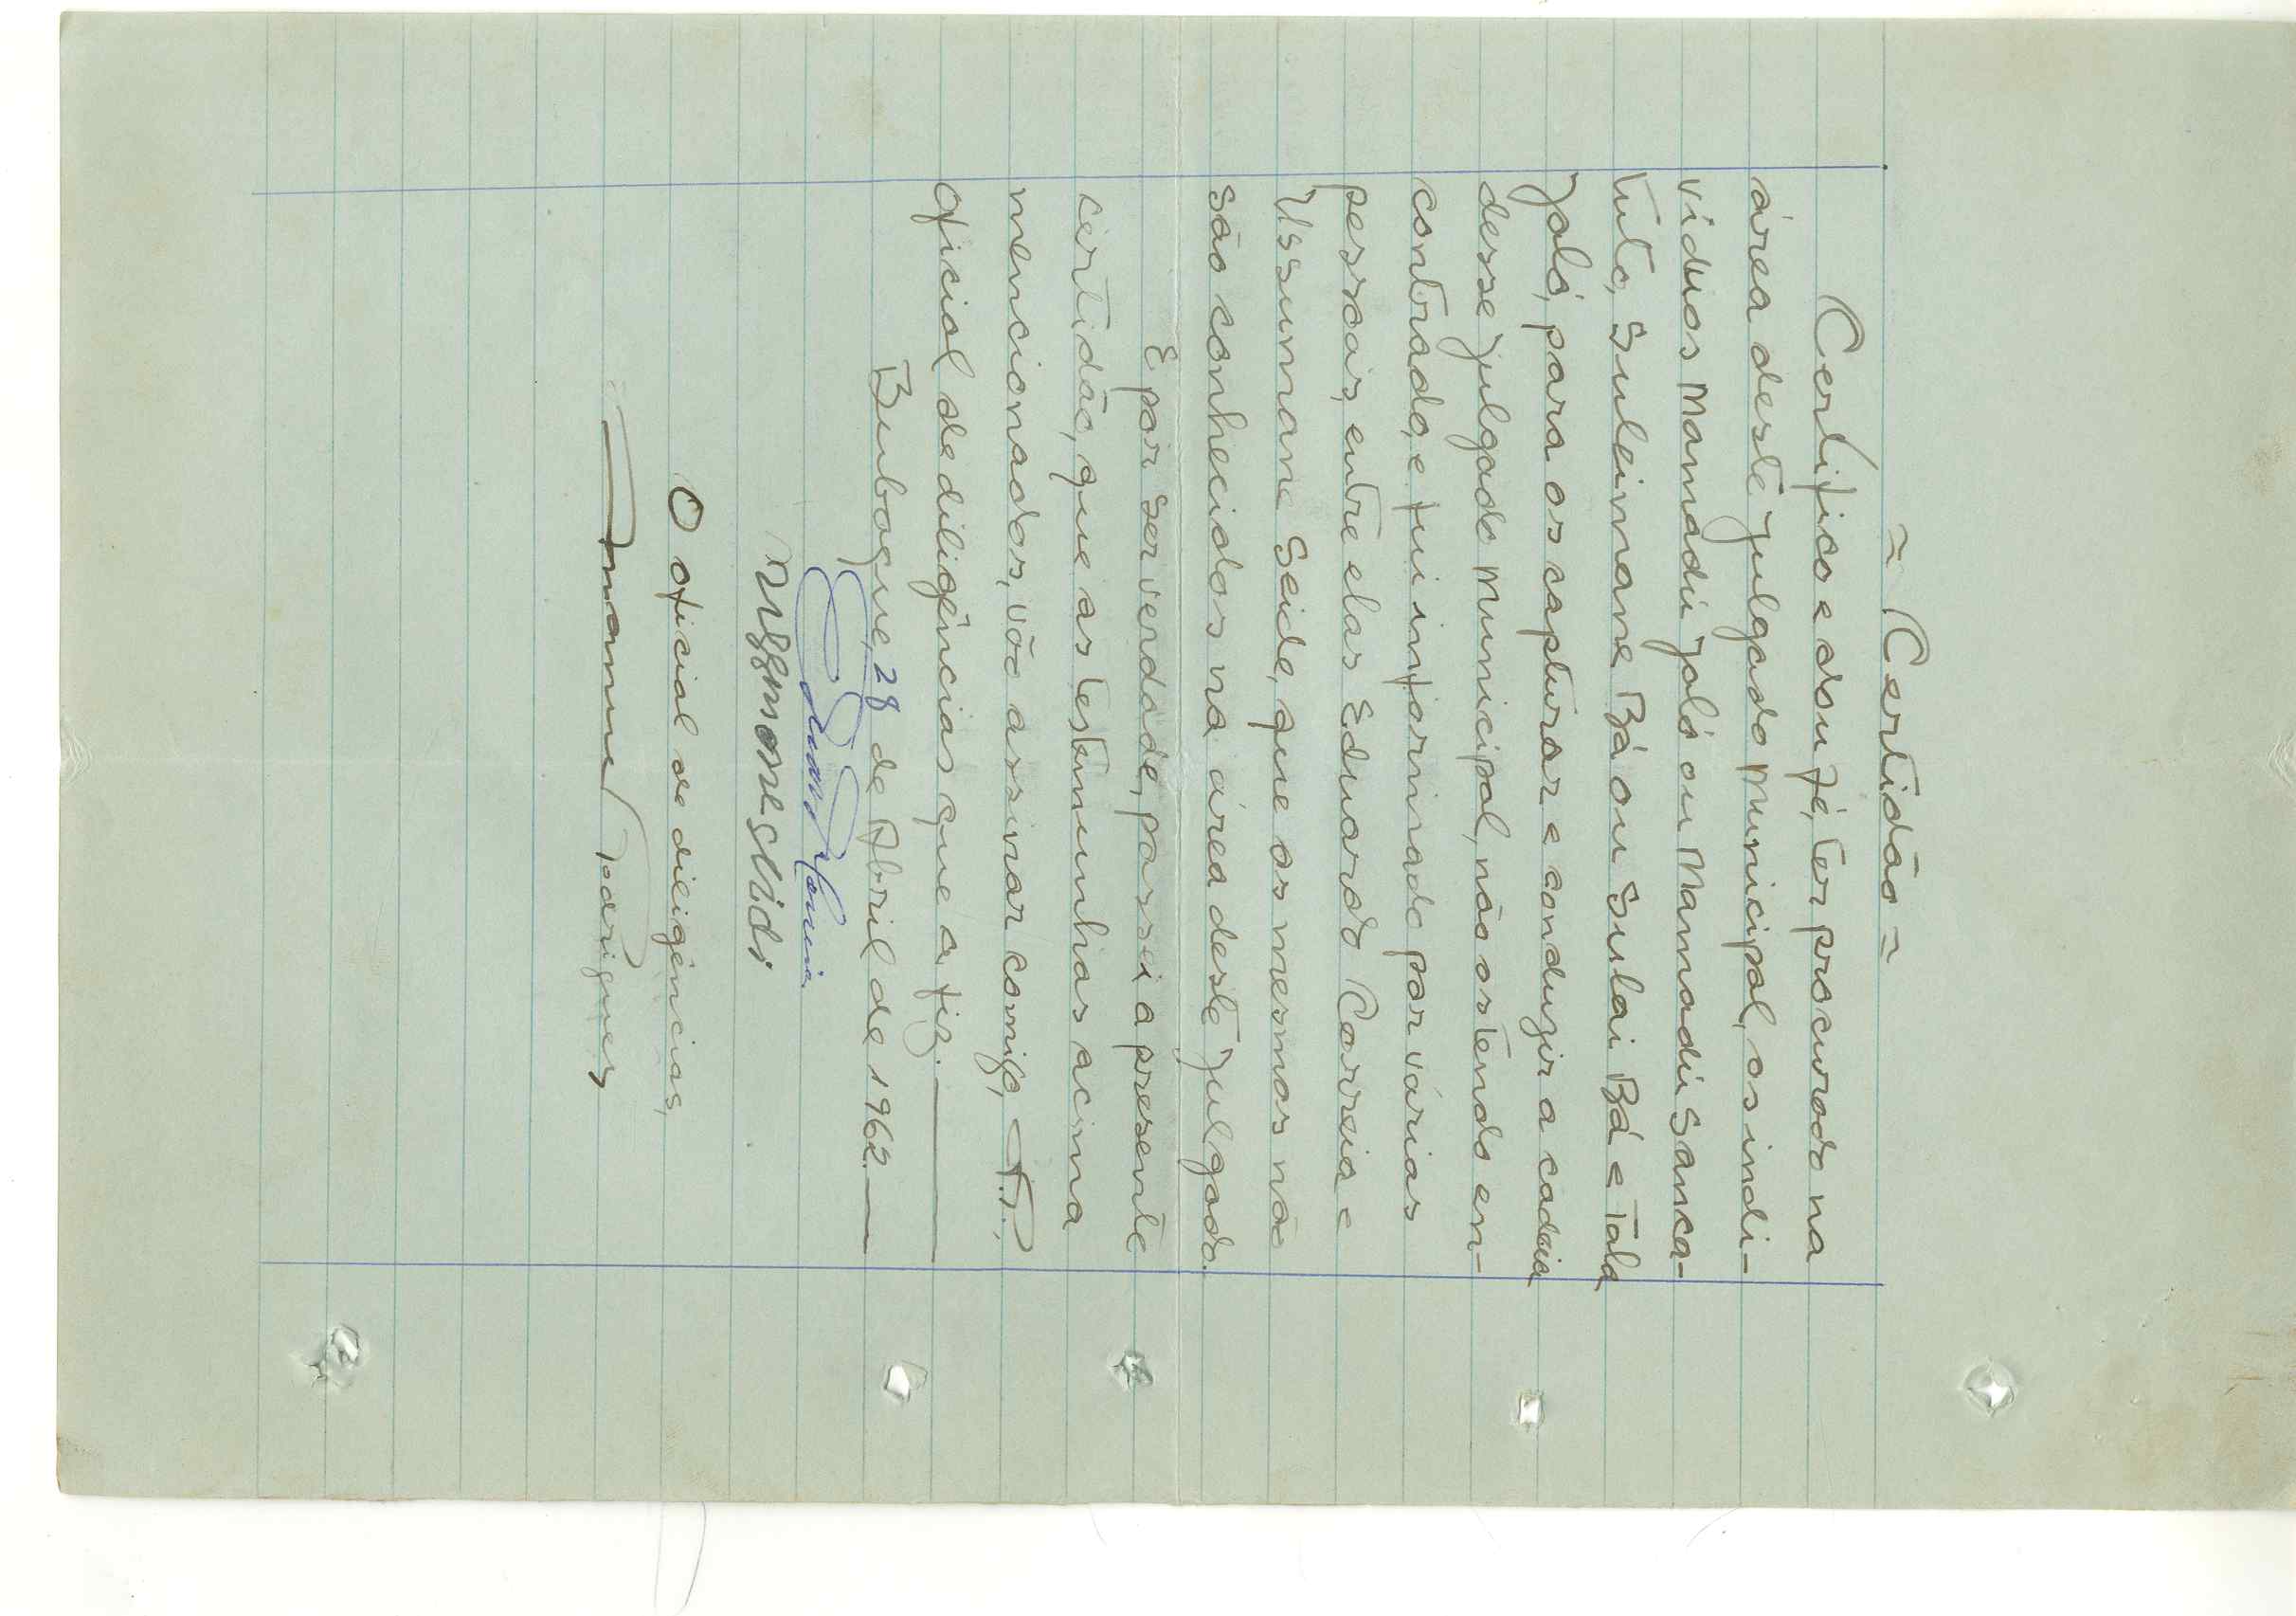 = Certidão =
Certifico e dou fé, ter procurado na
área deste julgado municipal, os indi-
víduos Mamadú Jaló ou Mamadú Sanca-
tuto, Suleimane Bá ou Sulai Bá e Tala
Jaló, para os capturar e conduzir a cadeia
desse julgado municipal, não os tendo en-
contrado, e fui informado por várias
pessoas, entre elas Eduardo Correia e
Ussumane Seide, que os mesmos não
são conhecidos na área deste julgado.
E por ser verdade, passei a presente
certidão, que as testemunhas acima
mencionados, vão assinar comigo,
oficial de diligências que a fiz.
Bubaque, 28 de Abril de 1962.
Ussumane Seidi
O oficial de diligências,
Rodrigues